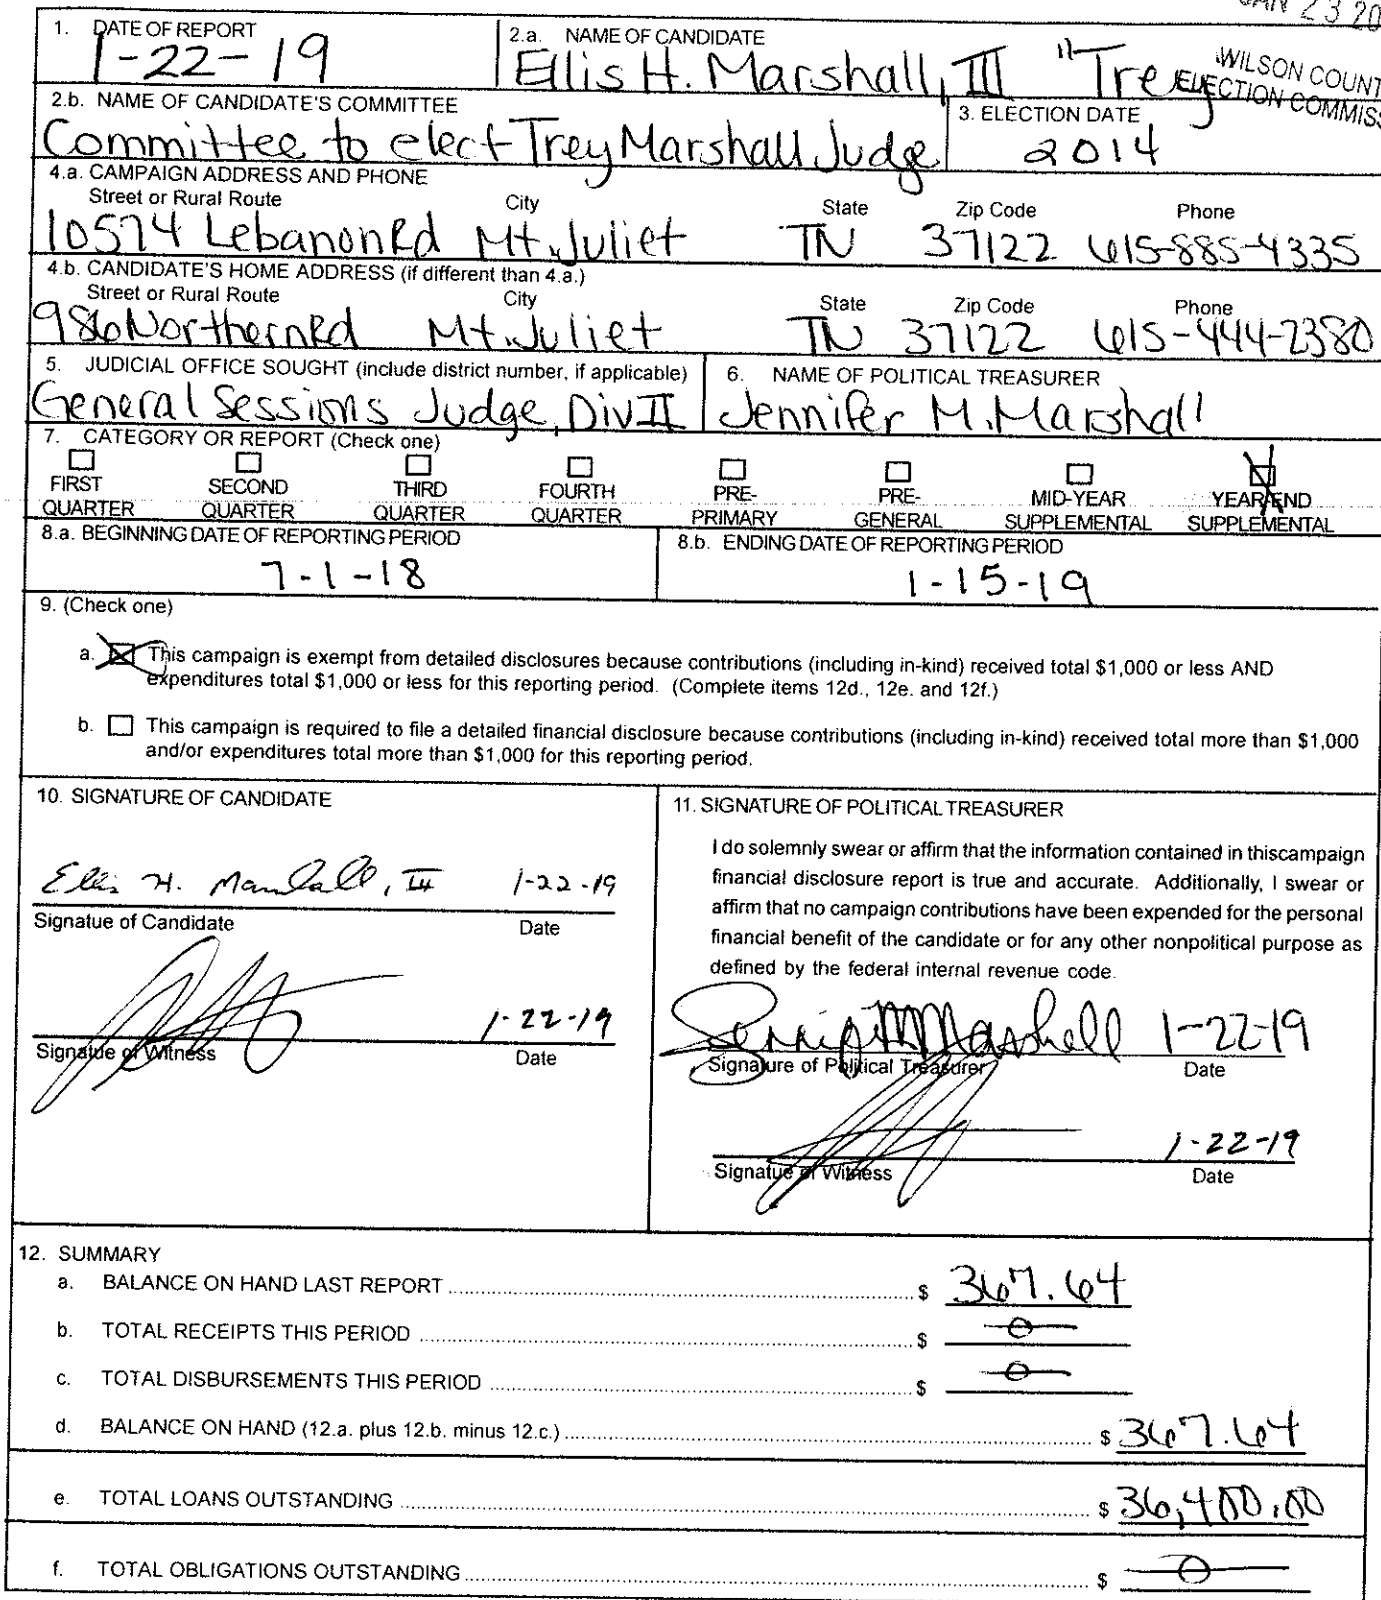 JAN 23 20
1. DATE OF REPORT
1-22-19
2.a. NAME OF CANDIDATE
Ellis H. Marshall, III "Trey"
WILSON COUNT
ELECTION COMMISS
2.b. NAME OF CANDIDATE'S COMMITTEE
Committee to elect Trey Marshall Judge
3. ELECTION DATE
2014
4.a. CAMPAIGN ADDRESS AND PHONE
Street or Rural Route City State Zip Code Phone
10574 Lebanon Rd Mt. Juliet TN 37122 615-885-4335
4.b. CANDIDATE'S HOME ADDRESS (if different than 4.a.)
Street or Rural Route City State Zip Code Phone
986 Northern Rd Mt. Juliet TN 37122 615-444-2380
5. JUDICIAL OFFICE SOUGHT (include district number, if applicable)
General Sessions Judge, Div II
6. NAME OF POLITICAL TREASURER
Jennifer M. Marshall
7. CATEGORY OR REPORT (Check one)
FIRST QUARTER
SECOND QUARTER
THIRD QUARTER
FOURTH QUARTER
PRE-PRIMARY
PRE-GENERAL
MID-YEAR SUPPLEMENTAL
YEAR-END SUPPLEMENTAL
8.a. BEGINNING DATE OF REPORTING PERIOD
7-1-18
8.b. ENDING DATE OF REPORTING PERIOD
1-15-19
9. (Check one)
a. This campaign is exempt from detailed disclosures because contributions (including in-kind) received total $1,000 or less AND
expenditures total $1,000 or less for this reporting period. (Complete items 12d., 12e. and 12f.)
b. This campaign is required to file a detailed financial disclosure because contributions (including in-kind) received total more than $1,000
and/or expenditures total more than $1,000 for this reporting period.
10. SIGNATURE OF CANDIDATE
Ellis H. Marshall, III 1-22-19
Signatue of Candidate Date
1-22-19
Signatue of Witness Date
11. SIGNATURE OF POLITICAL TREASURER
I do solemnly swear or affirm that the information contained in thiscampaign
financial disclosure report is true and accurate. Additionally, I swear or
affirm that no campaign contributions have been expended for the personal
financial benefit of the candidate or for any other nonpolitical purpose as
defined by the federal internal revenue code.
Jennifer M Marshall 1-22-19
Signature of Political Treasurer Date
1-22-19
Signatue of Witness Date
12. SUMMARY
a. BALANCE ON HAND LAST REPORT $ 367.64
b. TOTAL RECEIPTS THIS PERIOD $ 0
c. TOTAL DISBURSEMENTS THIS PERIOD $ 0
d. BALANCE ON HAND (12.a. plus 12.b. minus 12.c.) $ 367.64
e. TOTAL LOANS OUTSTANDING $ 36,400.00
f. TOTAL OBLIGATIONS OUTSTANDING $ 0